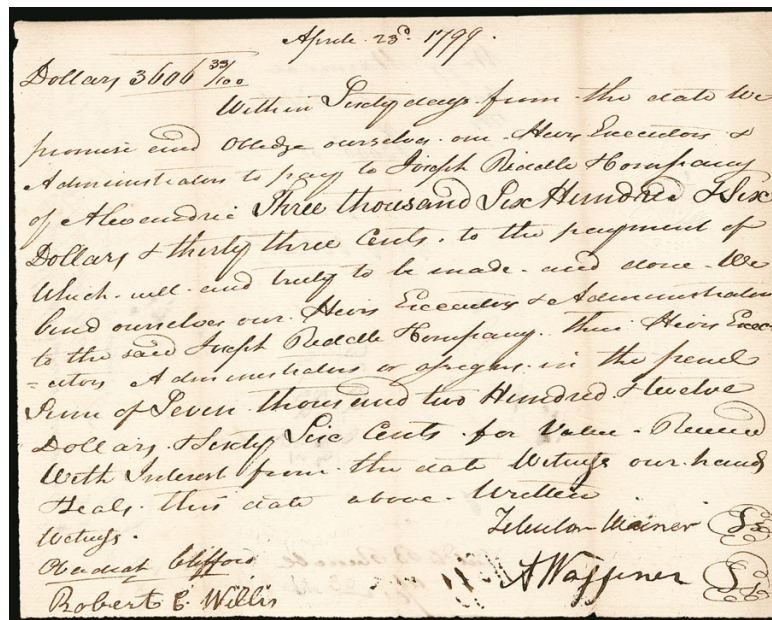 April 23d. 1799.
Dollars 3606 33/100
Within Sixty days from the date We
promise and Obledge ourselves our Heirs Executors &
Administrators to pay to Joseph Riddle & Company
of Alexandria Three thousand Six Hundred & Six
Dollars & thirty three Cents. to the payment of
Which well and truly to be made and done We
bind ourselves our Heirs Executors & Administrators
to the said Joseph Riddle & Company their Heirs Exec-
-utors Administrators or assigns in the penal
Sum of Seven thousand two Hundred & twelve
Dollars & Sixty Six Cents for Value Received
With Interest from the date Witness our hands
Seals this date above Written
Witness.
Obediah Clifford
Robert E. Willis
A Waggener